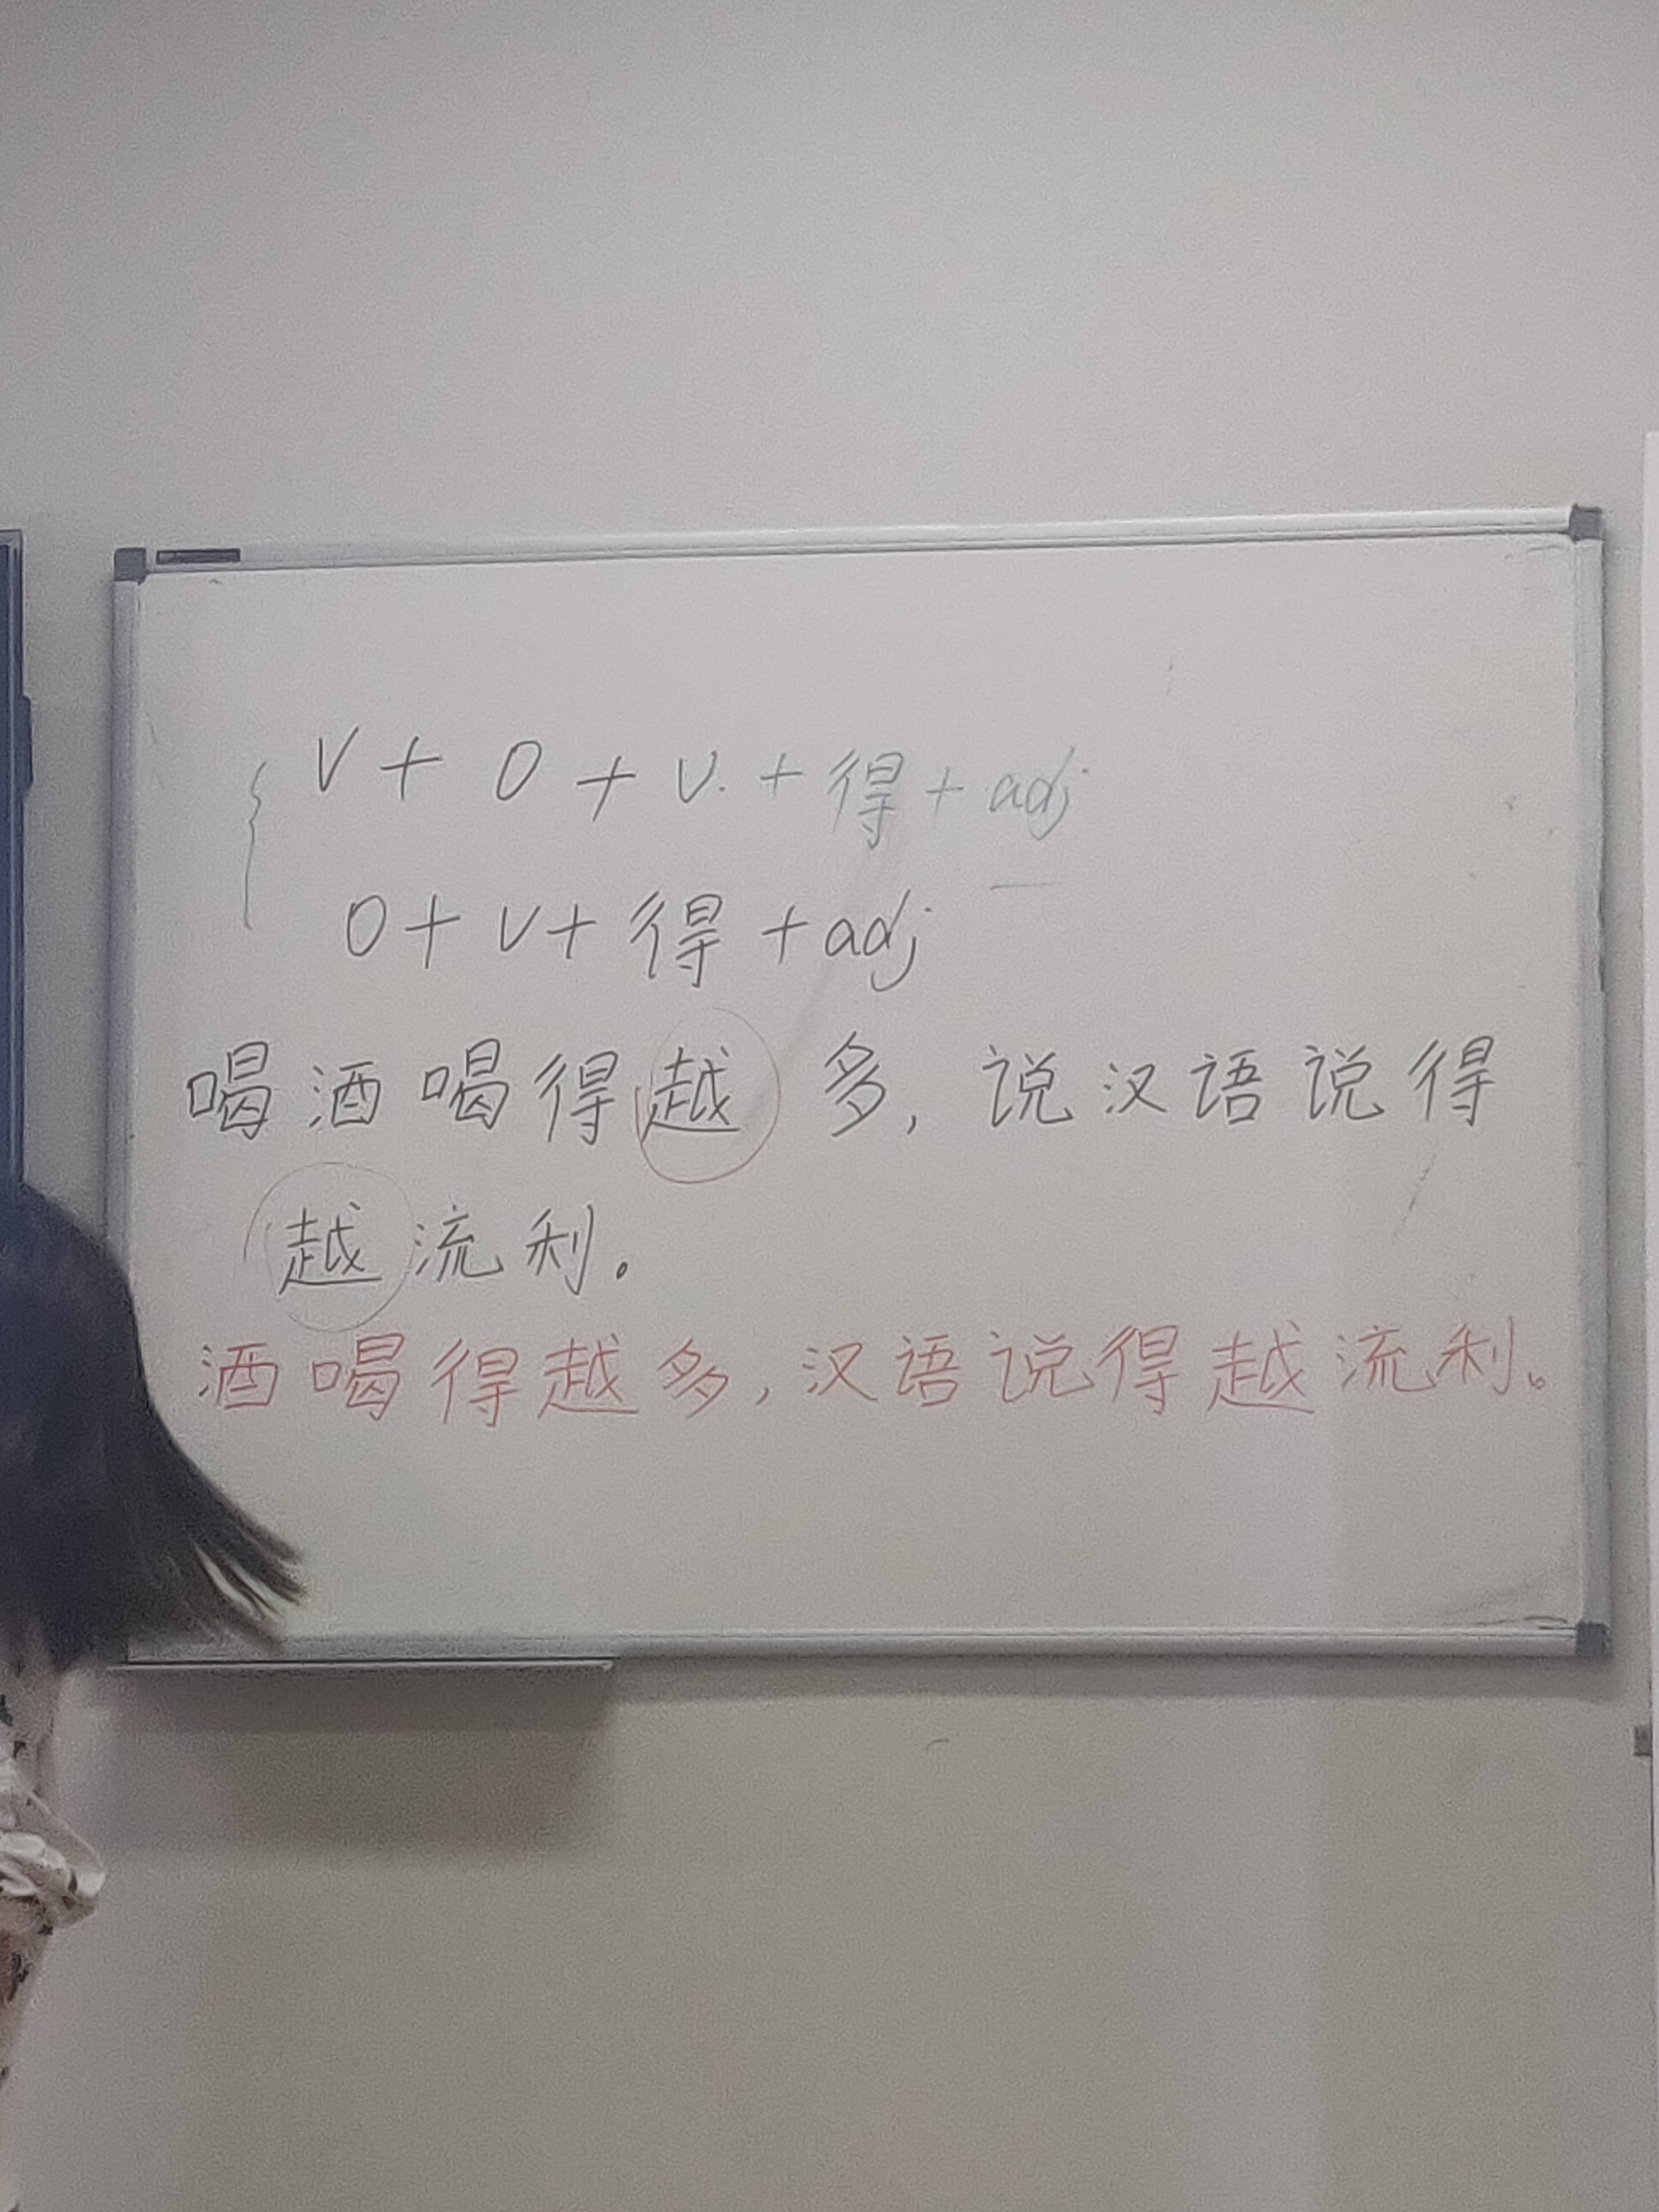 V + O + V. + 得 + adj
O + V + 得 + adj
喝酒喝得越多，说汉语说得
越流利。
酒喝得越多，汉语说得越流利。